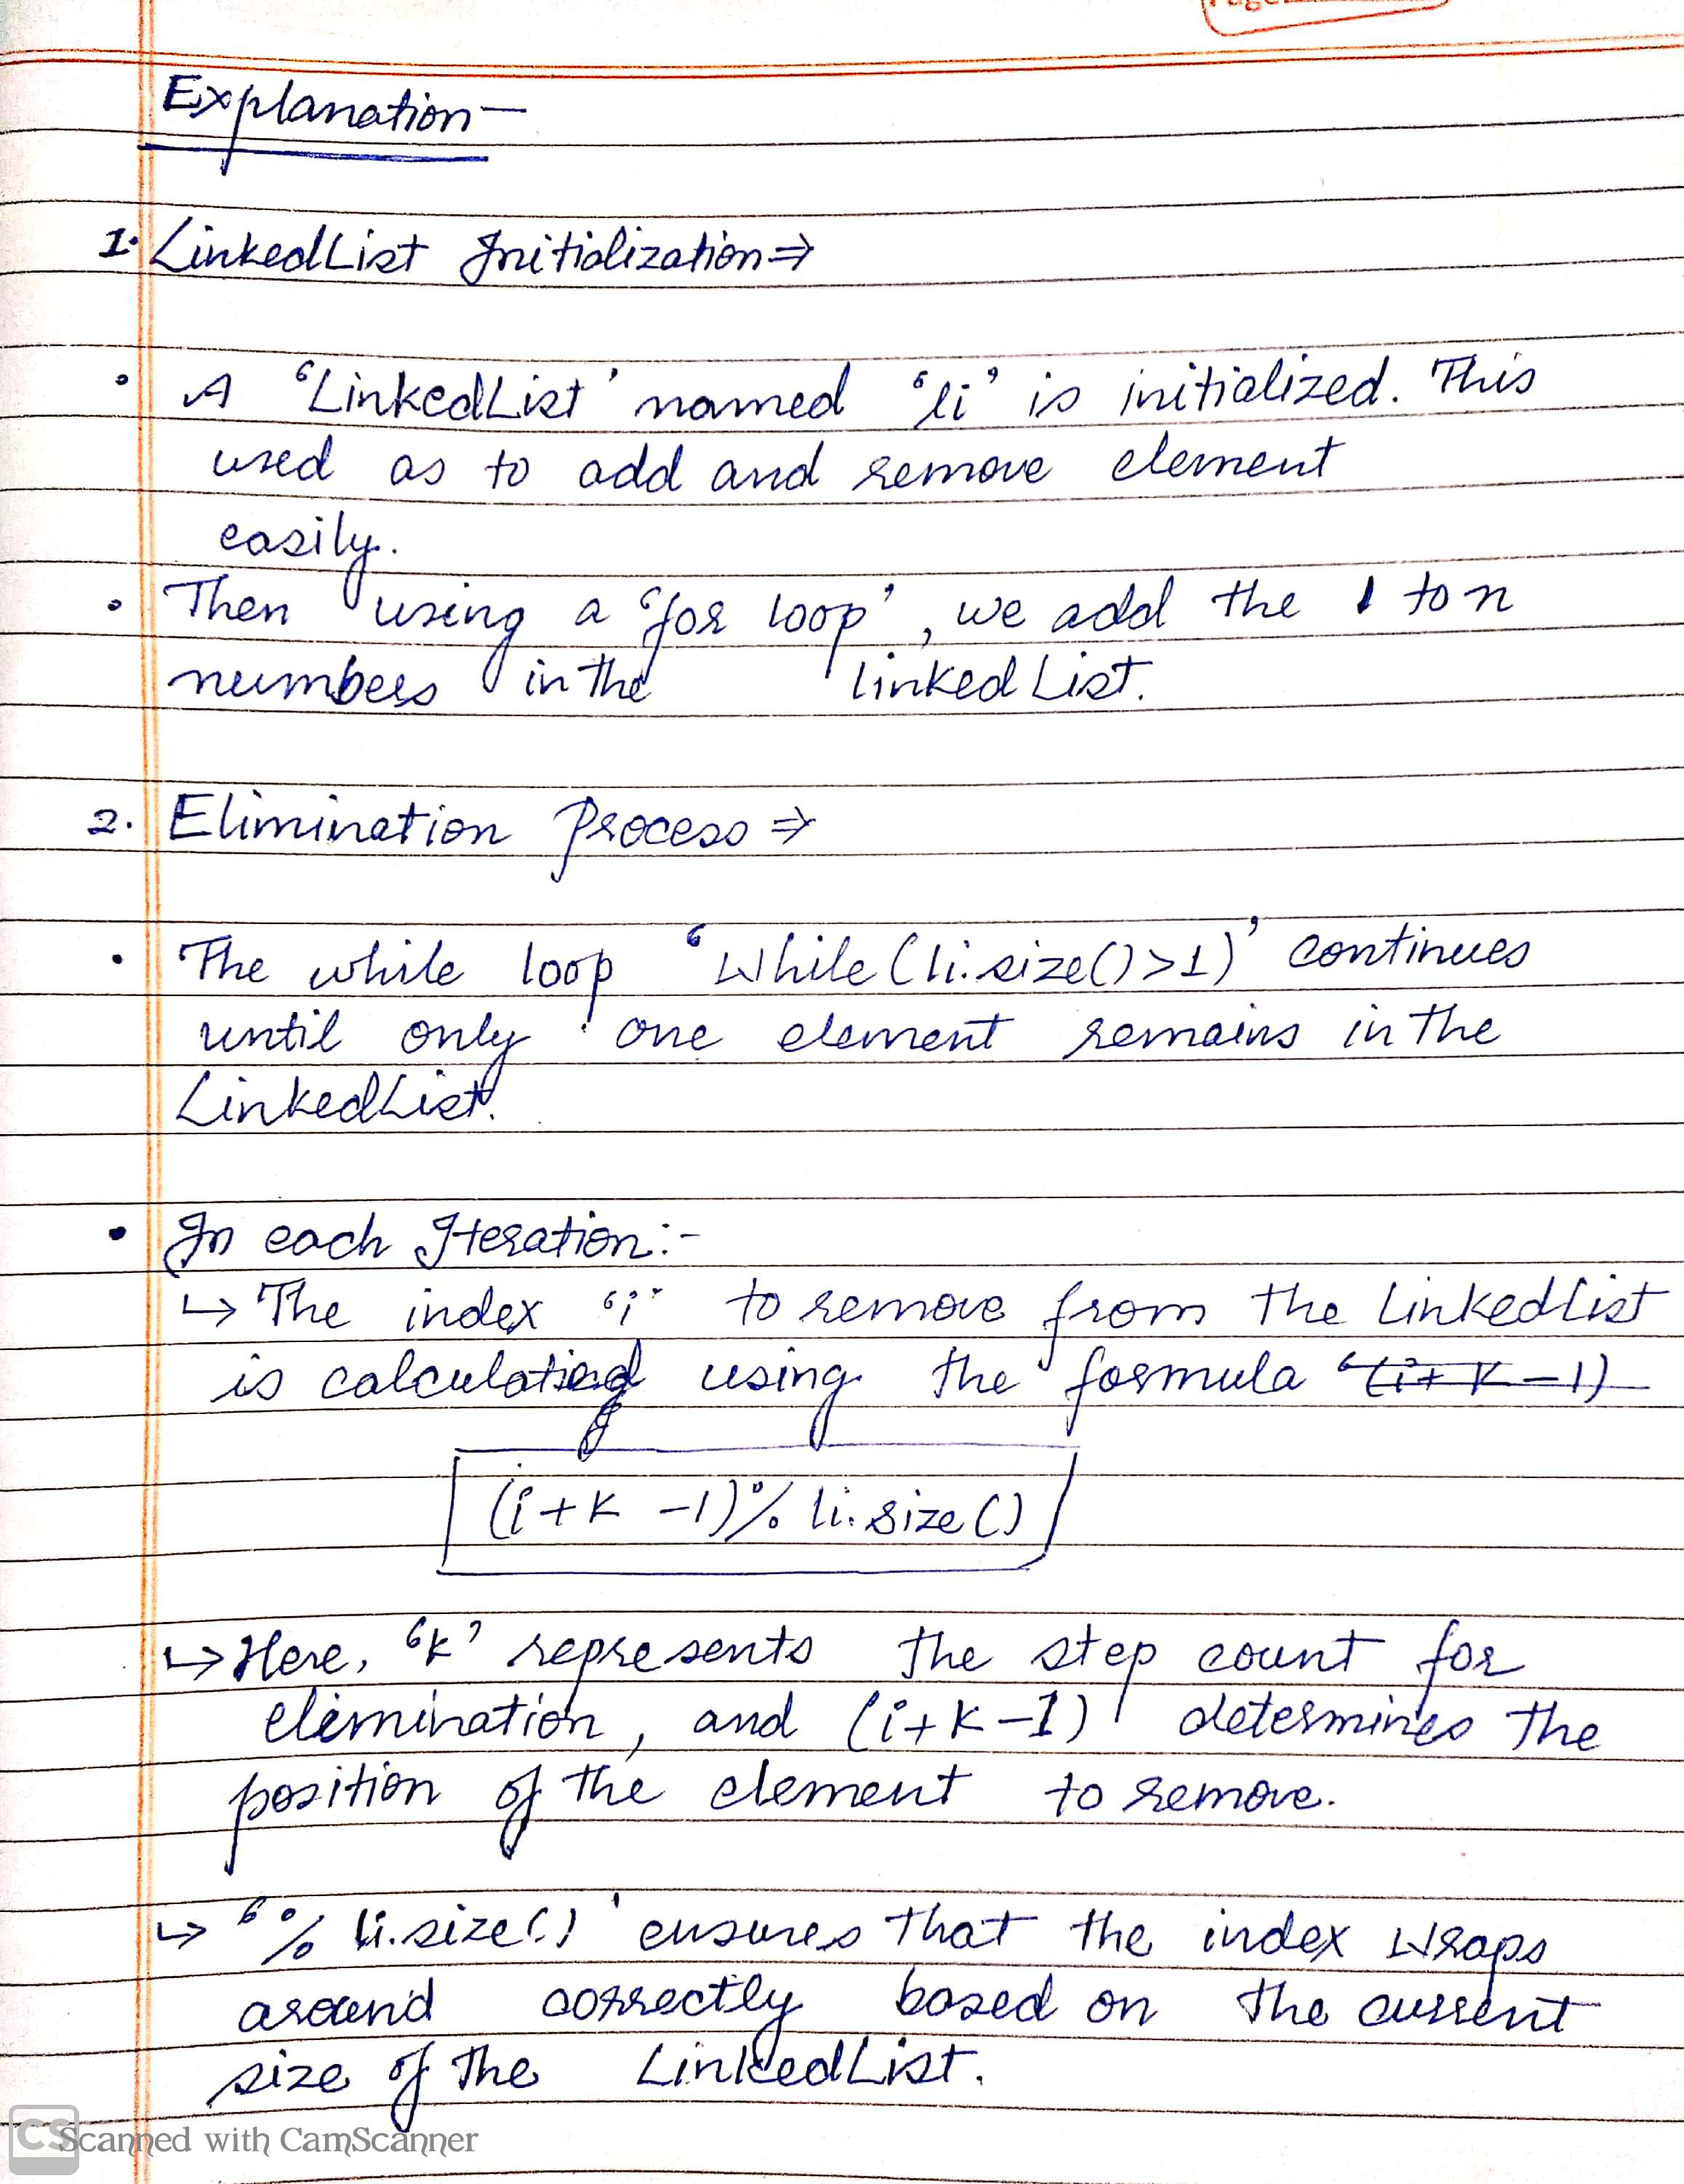 Explanation —
1. LinkedList Initialization ⇒
• A 'LinkedList' named 'li' is initialized. This
used as to add and remove element
easily.
• Then using a 'for loop', we add the 1 to n
numbers in the linked List.
2. Elimination Process ⇒
• The while loop 'While (li.size()>1)' continues
until only one element remains in the
LinkedList.
• In each Iteration:-
↳ The index 'i' to remove from the LinkedList
is calculated using the formula '(i+k-1)
(i+k -1)% li.size()
↳ Here, 'k' represents the step count for
elimination, and (i+k-1) determines the
position of the element to remove.
↳ '% li.size()' ensures that the index wraps
around correctly based on the current
size of the LinkedList.
CS Scanned with CamScanner